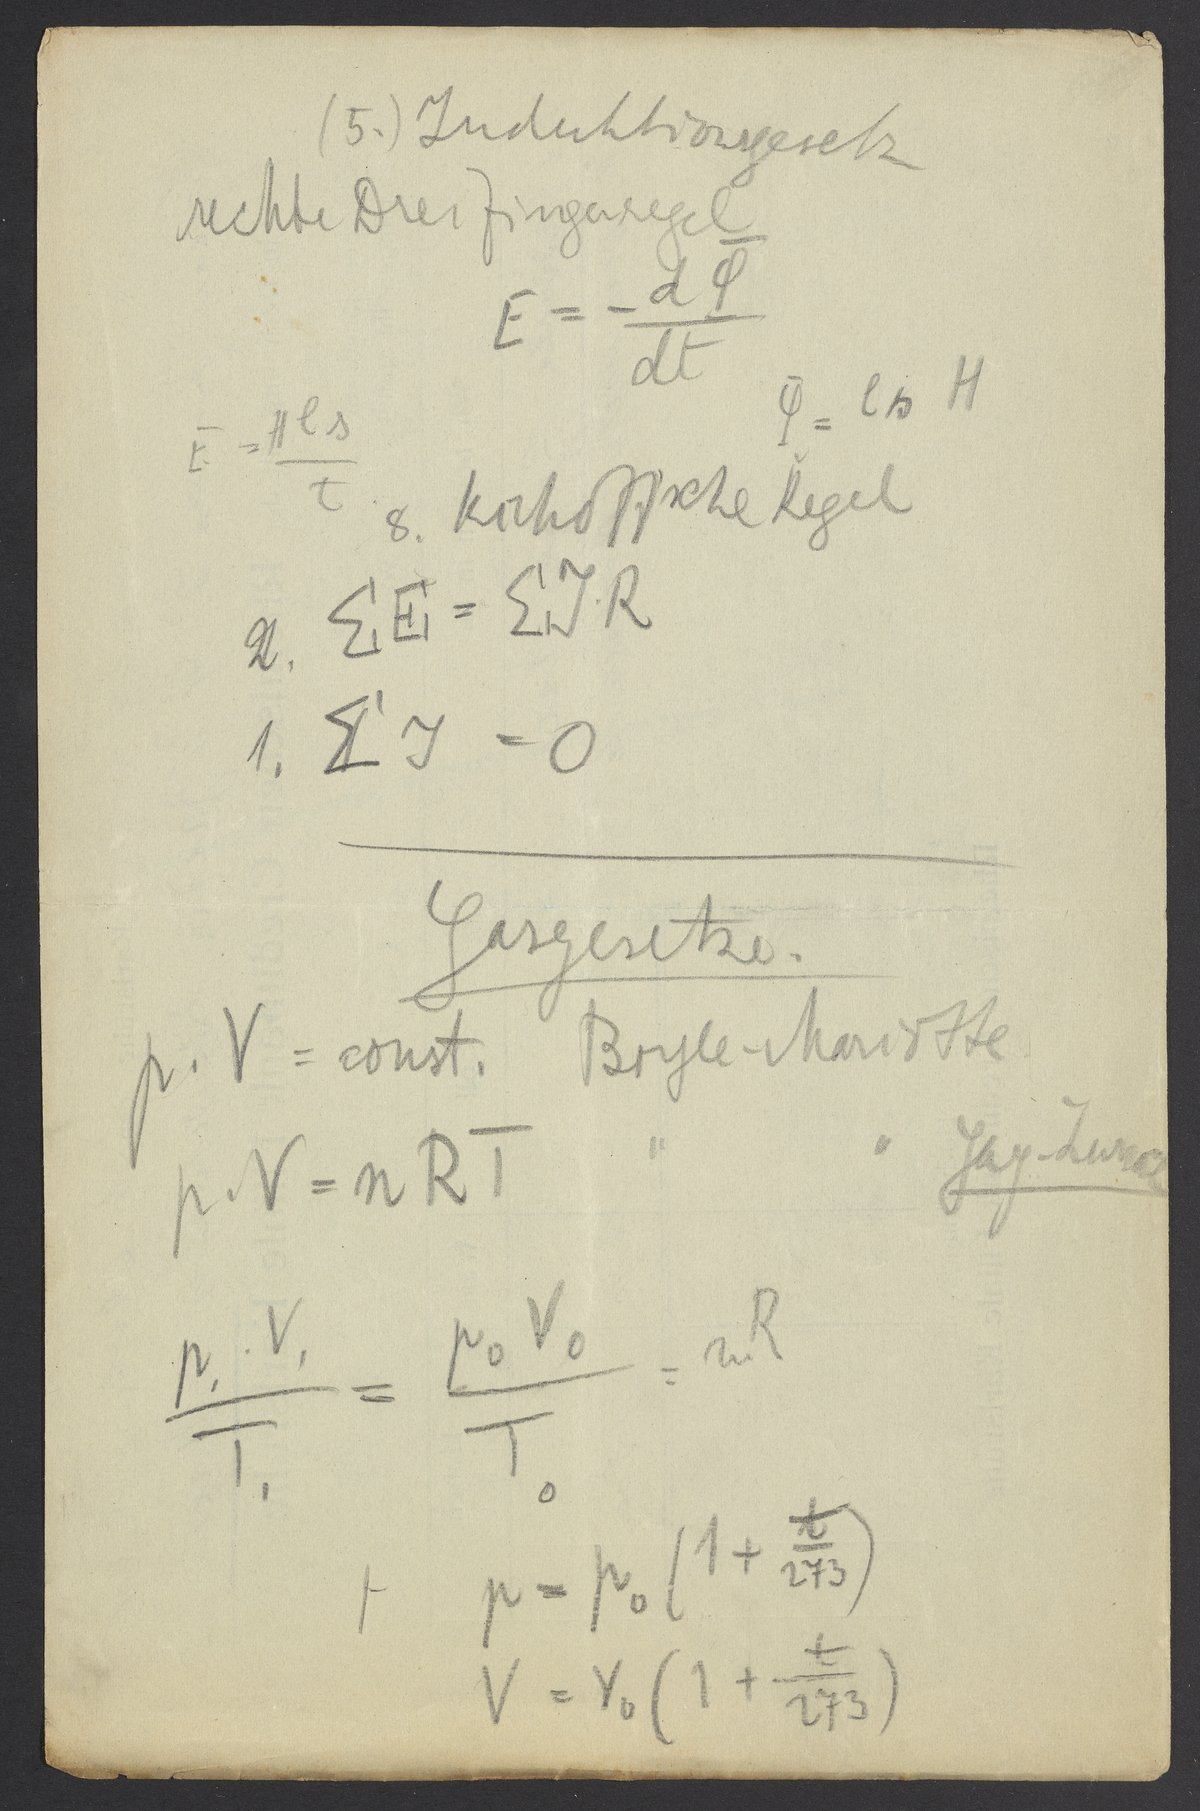 (5.) Induktionsgesetz
rechte Dreifingerregel
E = - dΦ/dt
Φ = l s H
E = H l s / t
8. Kirchoffsche Regel
2. ΣE = ΣJ·R
1. ΣJ = 0
Gasgesetze.
p. V = const. Boyle-Mariotte
p. V = n R T " " Gay-Lussac
p₁ . V₁ / T₁ = p₀ V₀ / T₀ = n R
p = p₀ (1 + t/273)
V = V₀ (1 + t/273)